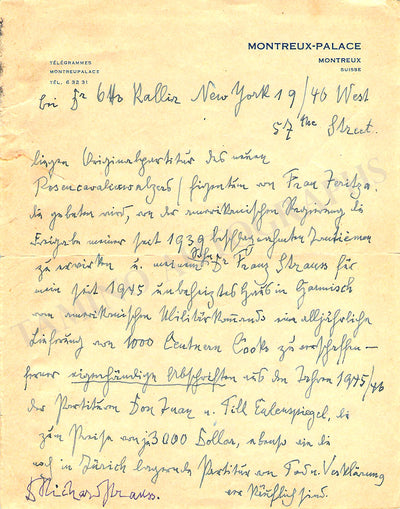 MONTREUX-PALACE
MONTREUX
SUISSE
TÉLÉGRAMMES
MONTREUPALACE
TÉL. 6 32 31
bei Dr Otto Kallir New York 19/46 West
57 the Street.
liegen Originalpartitur des neuen
Rosencavalierwalzers / Eigentum von Frau Jeritza
die gebeten wird, von der amerikanischen Regierung die
Freigabe meiner seit 1939 beschlagnahmten Tantiemen
zu erwirken u. meinem Sohn Dr Franz Strauss für
mein seit 1945 unbeheiztes Haus in Garmisch
vom amerikanischen Militärkommando eine alljährliche
Lieferung von 1000 Centnern Cooks zu verschaffen —
ferner eigenhändige Abschriften aus den Jahren 1945/46
der Partituren Don Juan u. Till Eulenspiegel, die
zum Preise von je 3000 Dollar, ebenso wie die
noch in Zürich liegende Partitur von Tod u. Verklärung
verkäuflich sind.
Dr Richard Strauss.